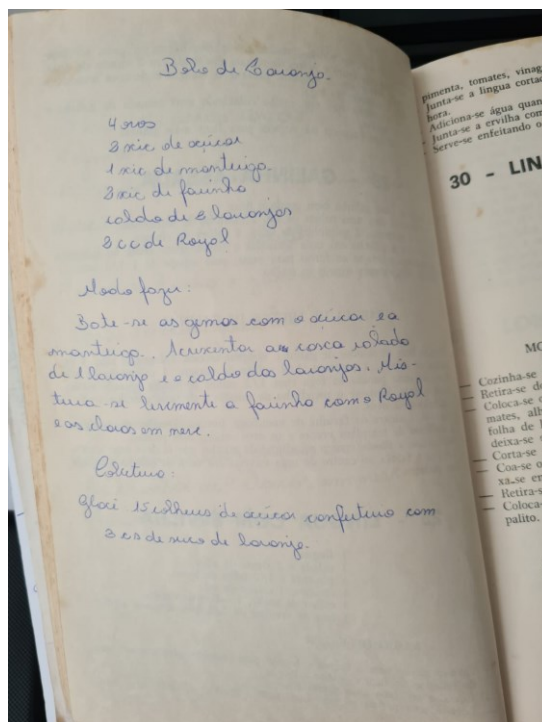 Bolo de Laranja.
4 ovos
3 xic de açúcar
1 xic de manteiga
3 xic de farinha
caldo de 2 laranjas
3 cc de Royal
Modo fazer:
Bate-se as gemas com o açúcar e a
manteiga. Acrescentar a casca ralada
de 1 laranja e o caldo das laranjas. Mis-
tura-se levemente a farinha com o Royal
e as claras em neve.
Cobertura:
Glacê 15 colheres de açúcar confeiteiro com
3 cs de suco de laranja.
pimenta, tomates, vinag
Junta-se a lingua corta
hora.
Adiciona-se água quan
Junta-se a ervilha com
Serve-se enfeitando o
30 - LIN
MO
— Cozinha-se
— Retira-se de
— Coloca-se
mates, alh
folha de
deixa-se
— Corta-se
— Coa-se o
xa-se en
— Retira-s
— Coloca-
palito.